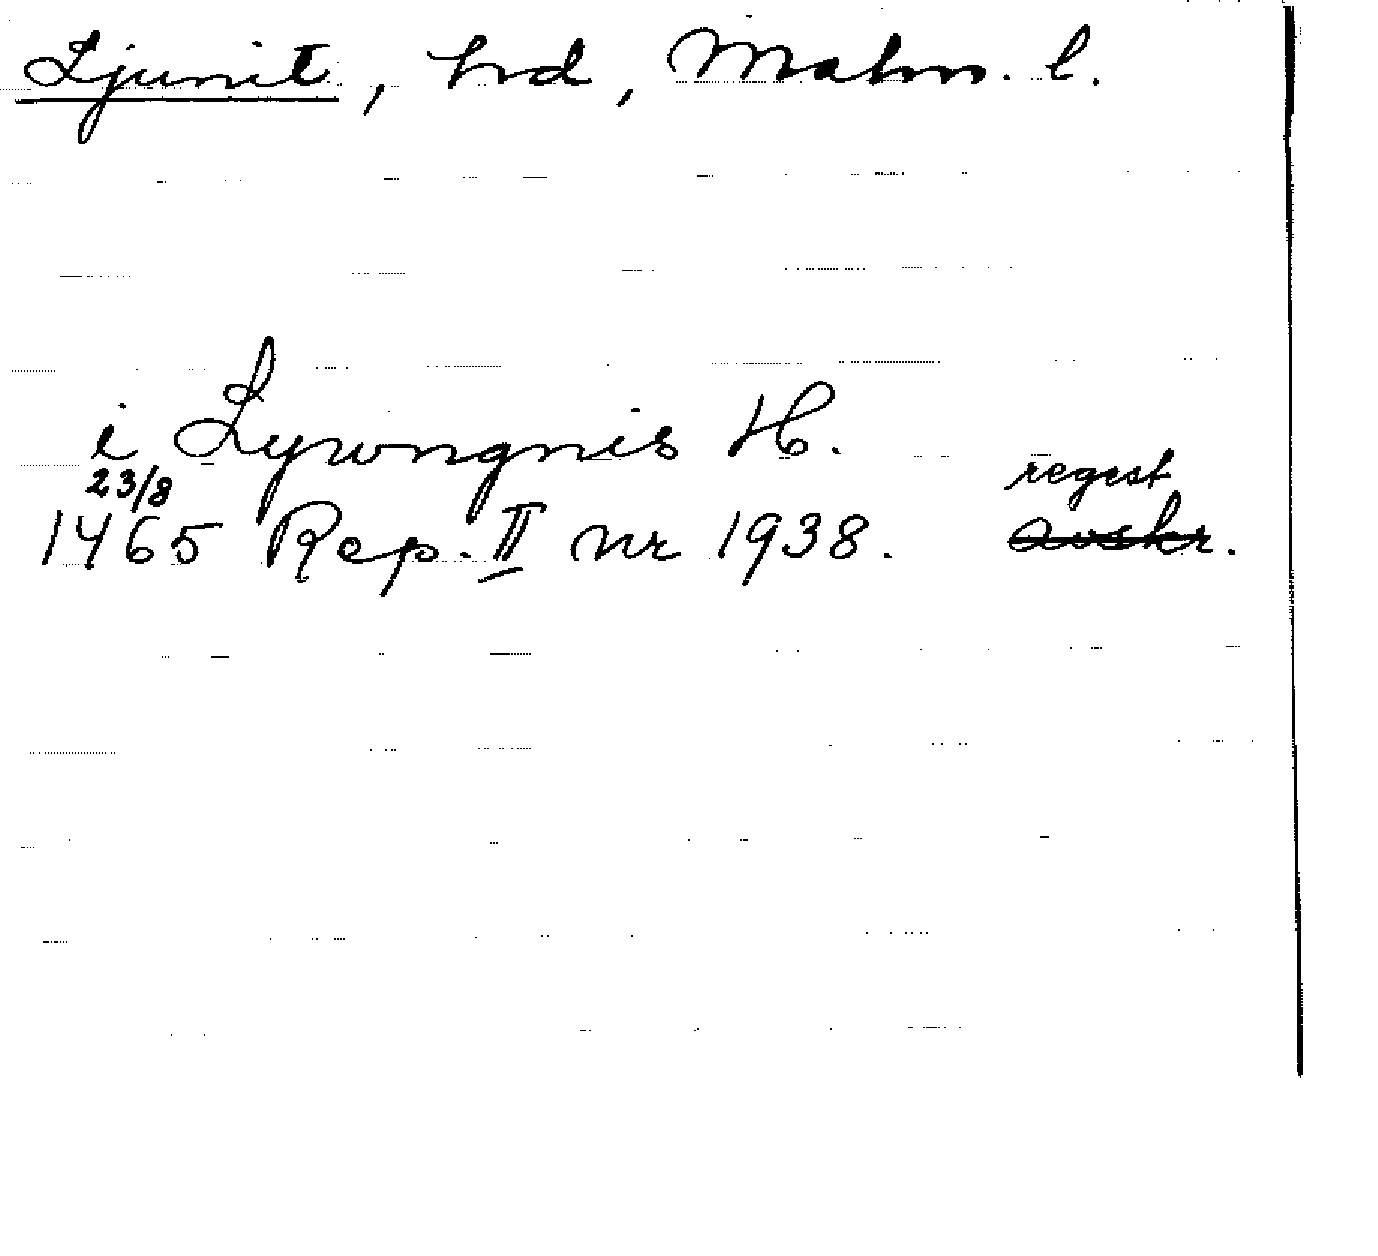 Ljunit, hrd, Malm. l.
i Lywngnis H.
23/8 regest
1465 Rep. II nr 1938. avskr.